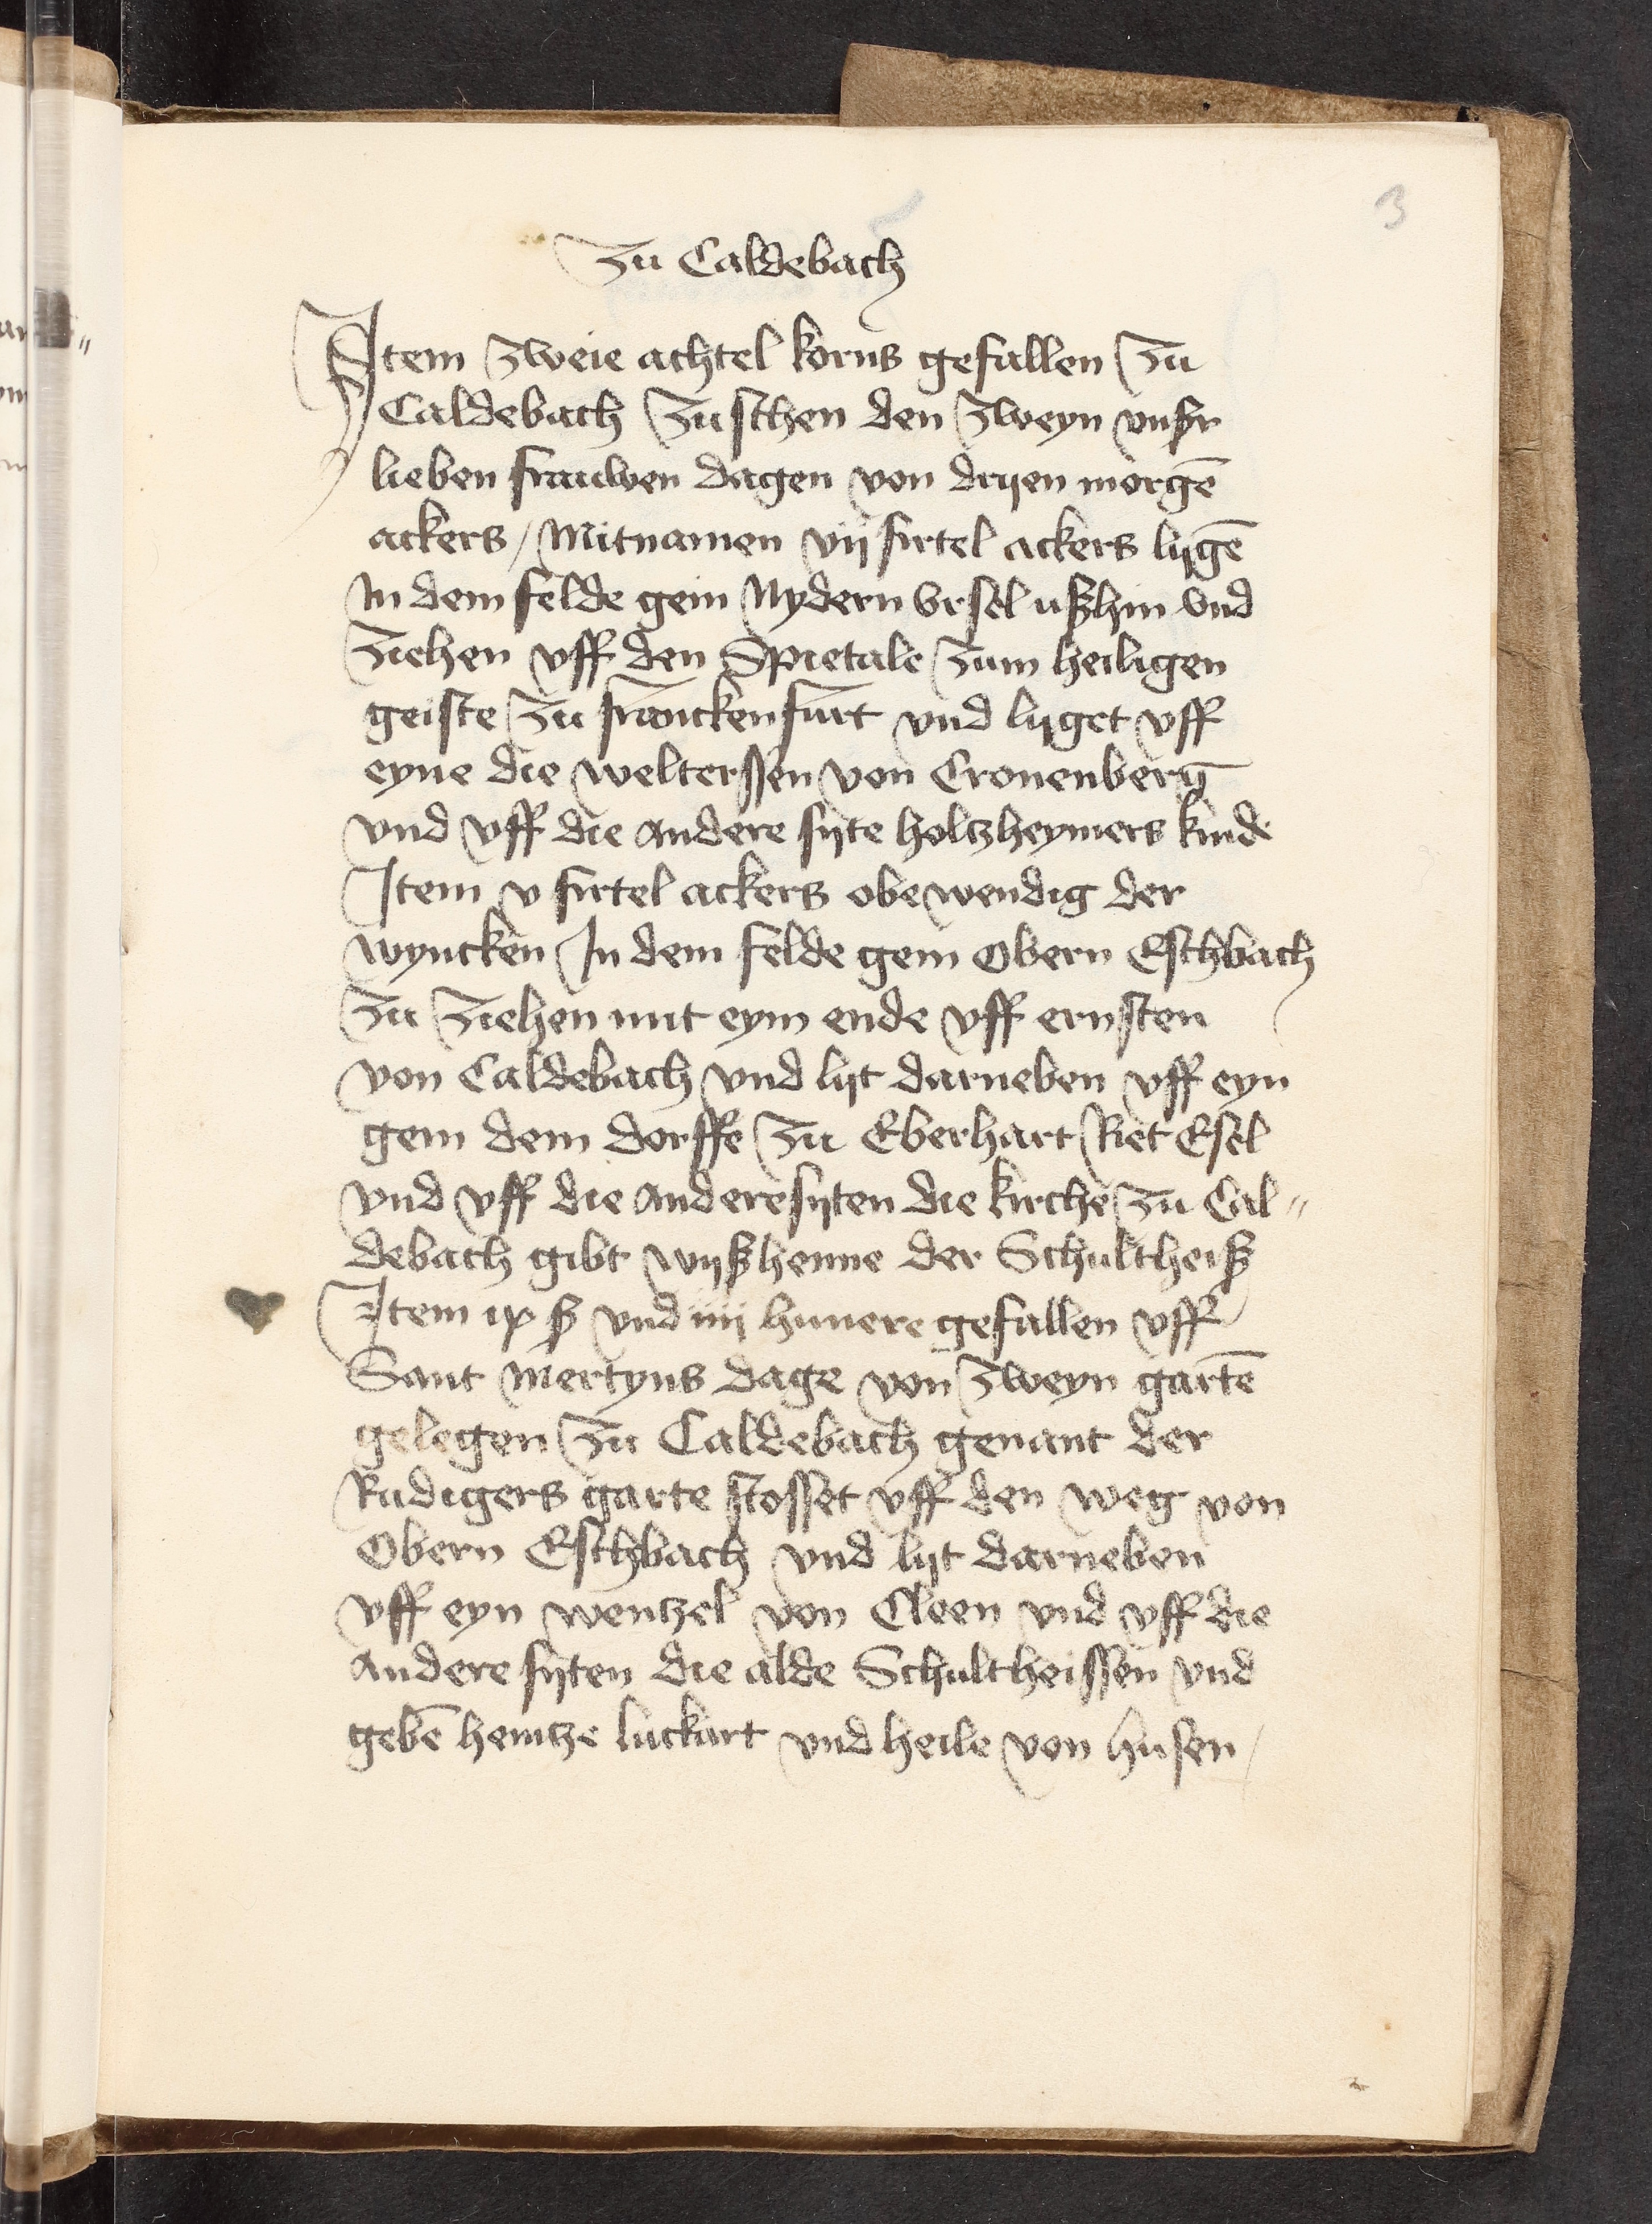 3
Zu Caldebach
Item zweie achtel korns gefallen zu
Caldebach zuschen den zweyn vnsr
lieben frauwen dagen von dryen morgē
ackers / Mitnamen vij firtel ackers lygē
In dem felde gein Nydern Vrsel ußhin vnd
ziehen vff den Spietale zum heiligen
geiste zu franckenfurt vnd lyget vff
eyne die welterssen von Cronenberg
vnd vff die andere syte holtzheymers kinde
Item v firtel ackers obewendig der
wyncken In dem felde gein Obern Eschbach
zu ziehen mit eym ende vff ernsten
von Caldebach vnd lyt darneben vff eyn
gein dem dorffe zu Eberhart Riet Esel
vnd vff die anderesyten die kirche zu Cal„
debach gibt wyßhenne der Schultheiß
Item ix ß vnd iiij hunere gefallen vff
Sant Mertyns dage von zweyn gartē
gelegen zu Caldebach genant der
Rudigers garte stosset vff den weg von
Obern Eschbach vnd lyt darneben
vff eyn wentzel von Cleen vnd vff die
andere syten die alde Schultheissen vnd
gebē heintze luckart vnd heile von husen /